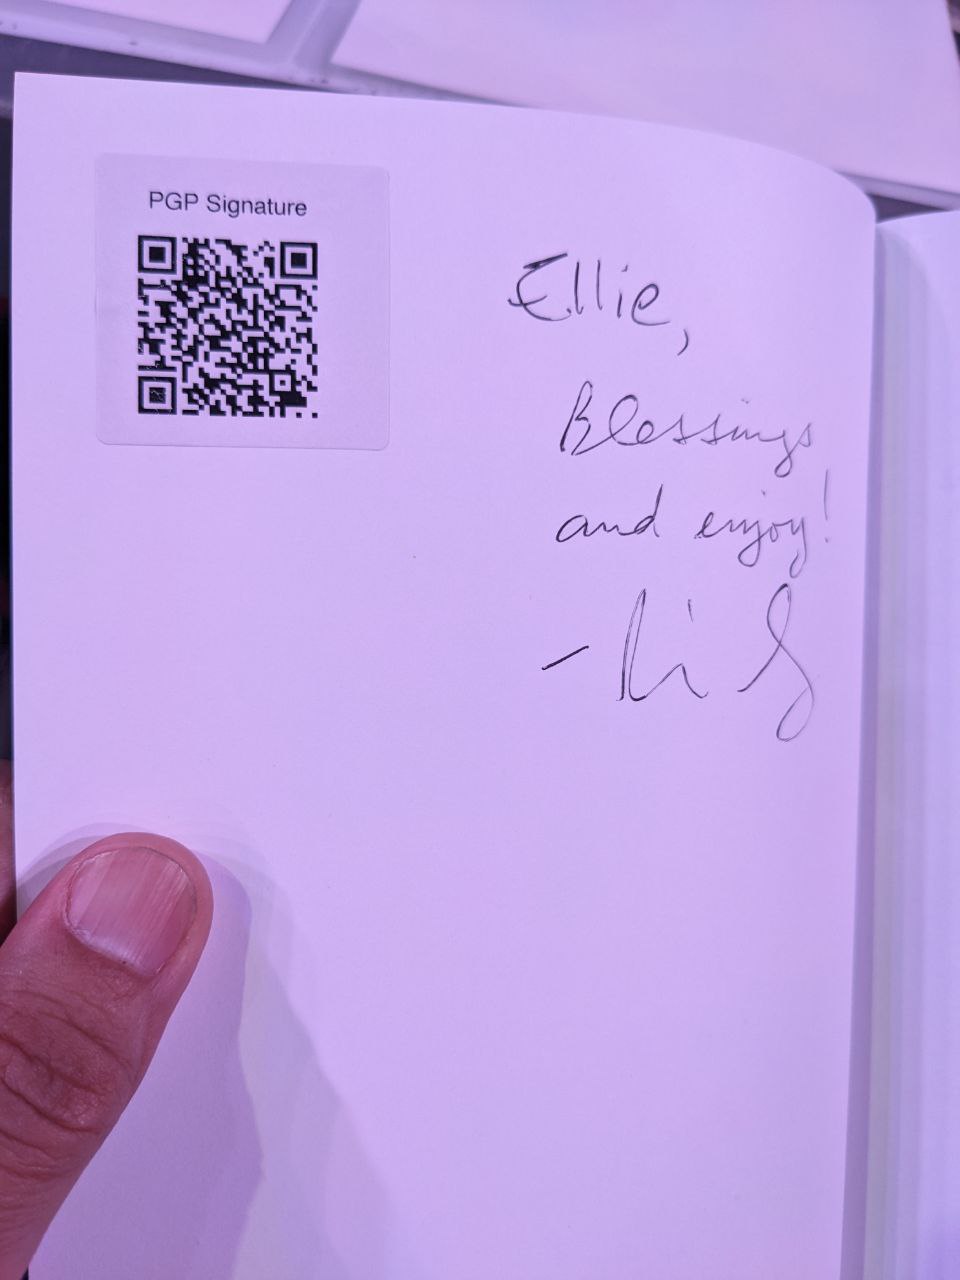 PGP Signature
Ellie,
Blessings
and enjoy!